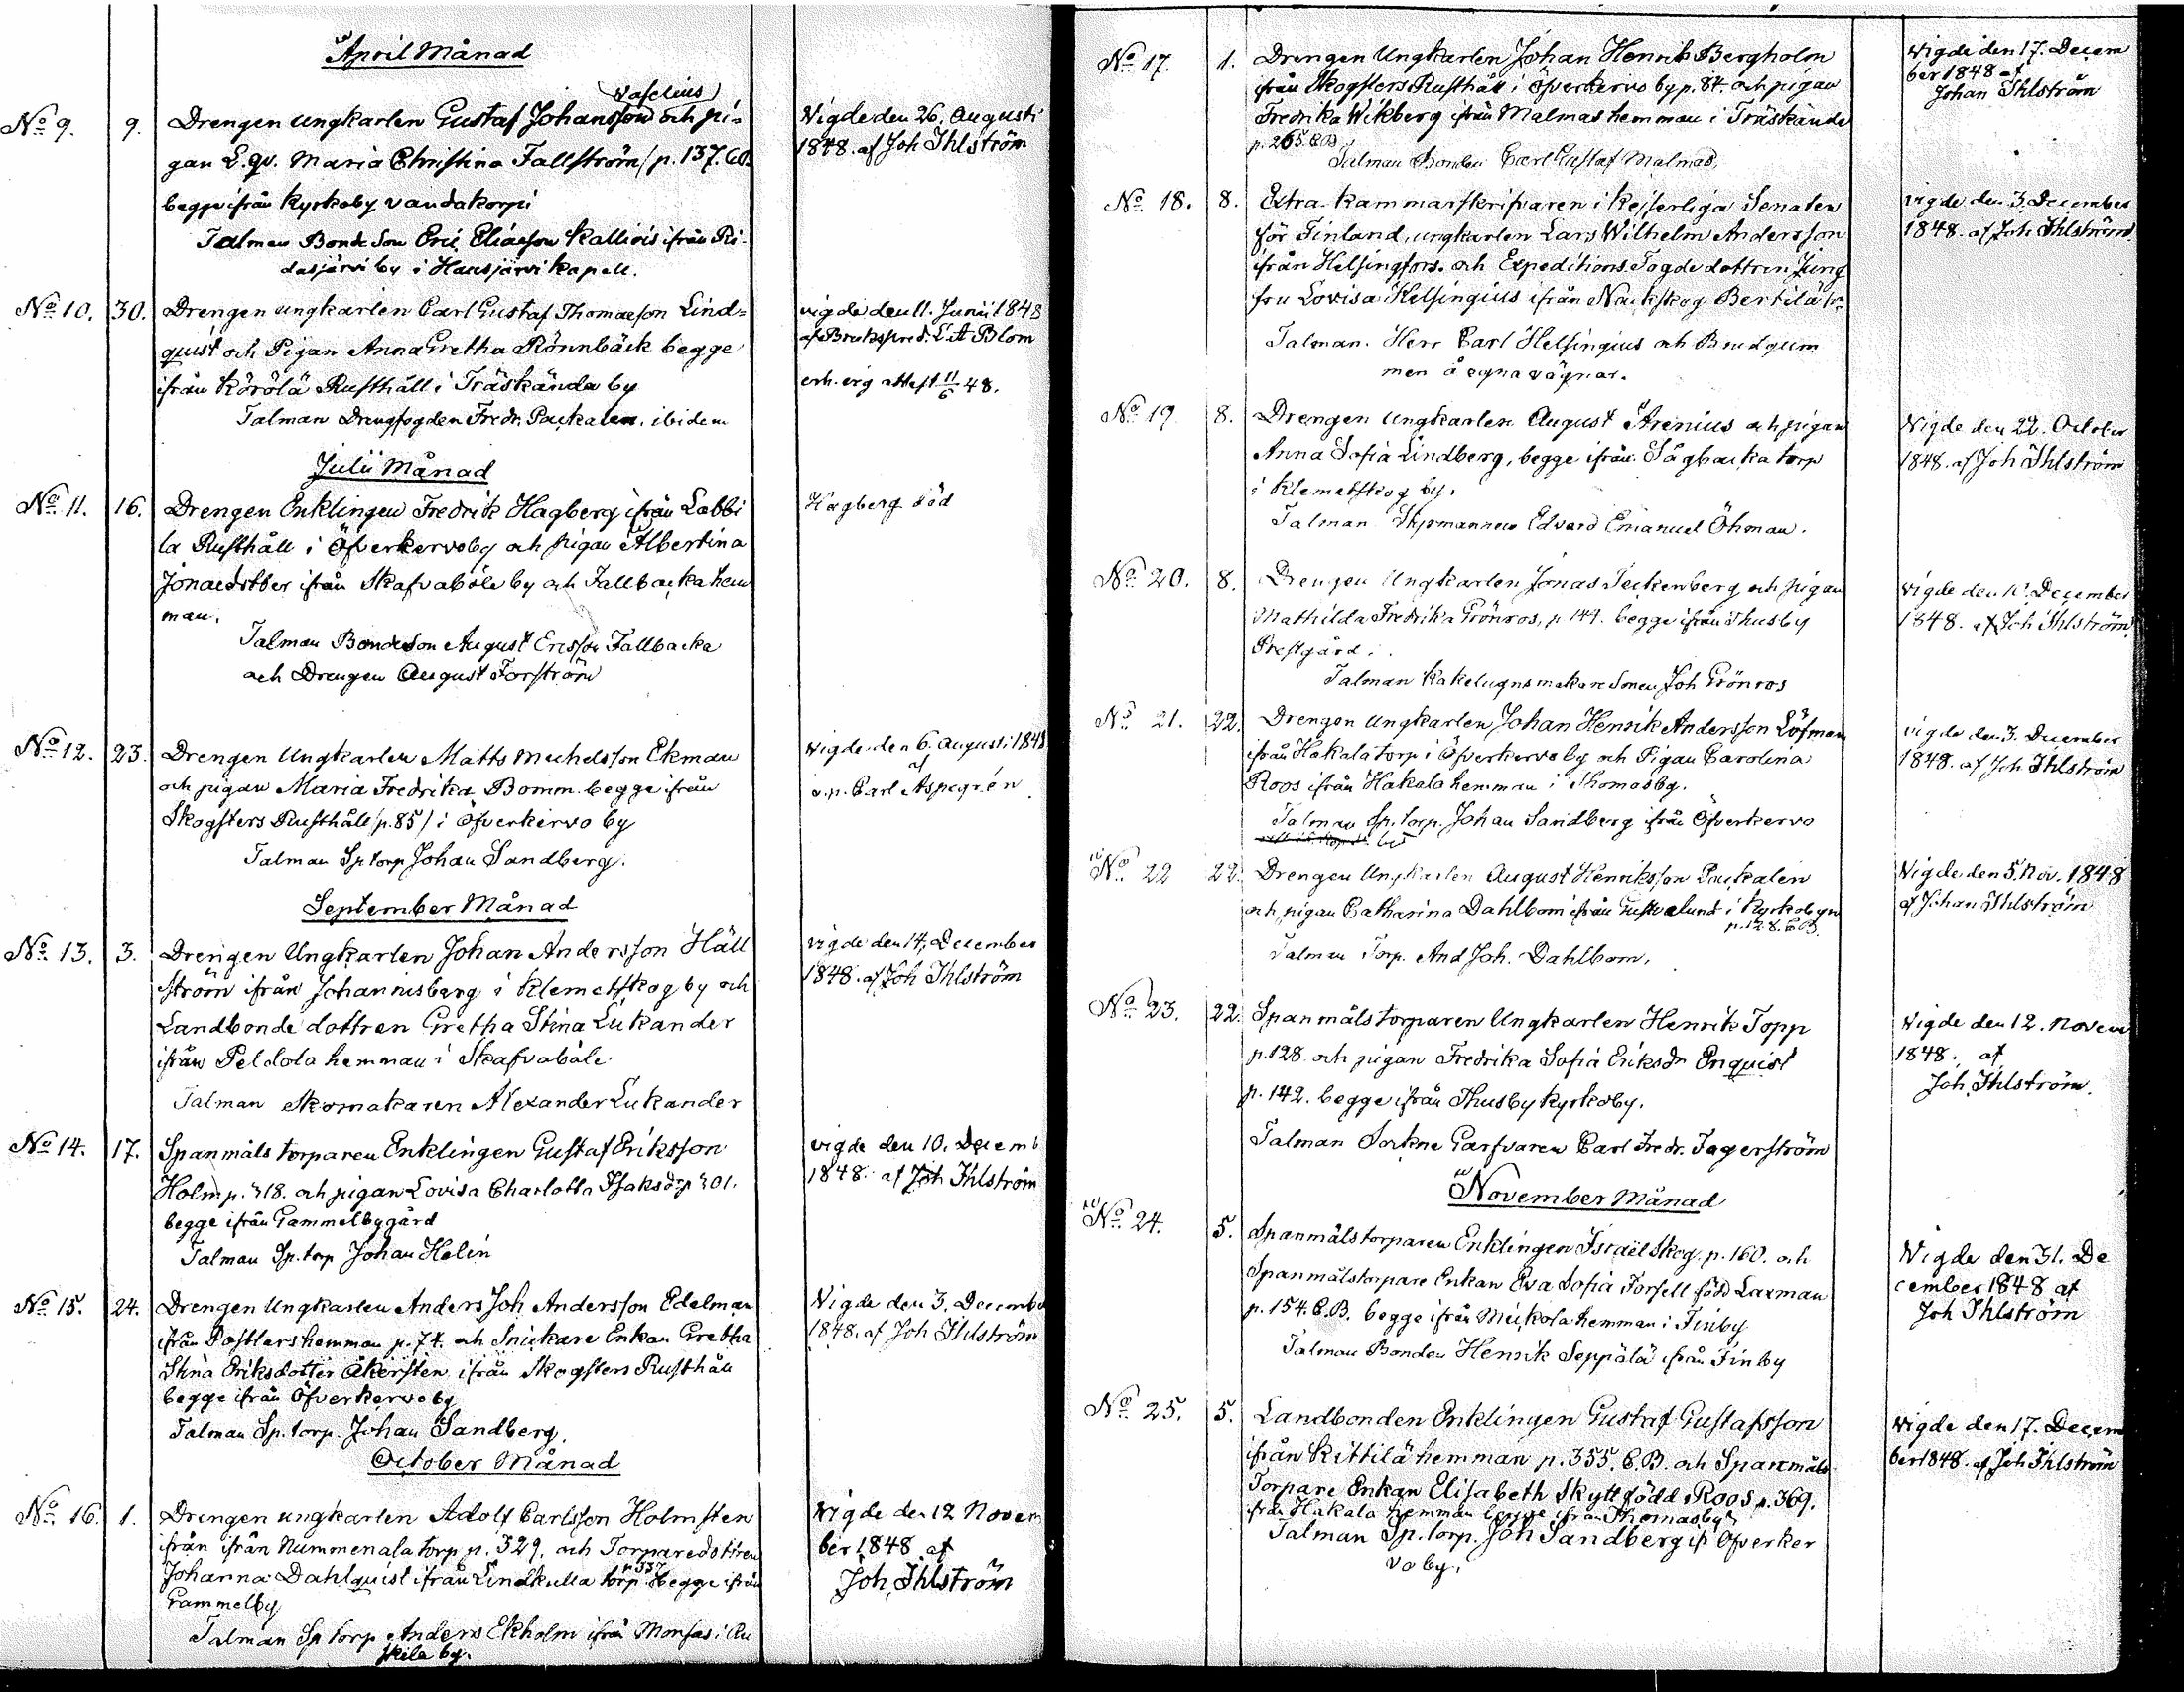 April Månad
Waselius
No 9. 9. Drengen ungkarlen Gustaf Johansson och pi-
gan E. qv. Maria Christina Fallström / p. 137.
begge ifrån Kyrkoby Vandakorpi
Talman Bonde Son Eric Eliaeson Kallivis ifrån Ri-
dasjärvi by i Hausjärvi kapell.
Vigde den 26. Augusti
1848. af Joh Ihlström
No 10. 30. Drengen ungkarlen Carl Gustaf Thomaeson Lind-
quist och Pigan Anna Gretha Rönnbäck begge
ifrån Körölä Rusthåll i Träskända by
Talman Drengfogden Fredr. Packalen. ibidem
vigde den 11. Junii 1848
af Brukspred. Blom
erh. vig attest 11/6 48.
Julii Månad
No 11. 16. Drengen Enklingen Fredrik Hagberg ifrån Labbi
la Rusthåll i Öfverkervoby och pigan Albertina
Jonaedotter ifrån Skafvaböle by och Fallbacka hem
man.
Talman Bondeson August Ericsson Fallbacka
och Drengen August Forström
Hagberg död
No 12. 23. Drengen Ungkarlen Matts Michelsson Ekman
och pigan Maria Fredrika Bomm. begge ifrån
Skogsters Rusthåll / p. 85 / i Öfverkervo by
Talman Sp torp Johan Sandberg.
Vigde den 6. Augusti 1848
af
v.p. Carl Aspegrén
September Månad
No 13. 3. Drengen Ungkarlen Johan Andersson Häll
ström ifrån Johannisberg i Klemetskog by och
Landbonde dottren Gretha Stina Lukander
ifrån Peldola hemman i Skafvaböle
Talman Skomakaren Alexander Lukander
vigde den 14. December
1848. af Joh Ihlström
No 14. 17. Spanmåls torparen Enklingen Gustaf Eriksson
Holm p. 318. och pigan Lovisa Charlotta Isaksdr p 301.
begge ifrån Gammelbygård
Talman Sp. torp Johan Helin
vigde den 10. Decemb
1848. af Joh Ihlström
No 15. 24. Drengen Ungkarlen Anders Joh Andersson Edelman
ifrån Postlers hemman p. 74. och Snickare Enkan Gretha
Stina Eriksdotter Åkersten ifrån Skogsters Rusthåll
begge ifrån Öfverkervoby
Talman Sp. torp. Johan Sandberg.
Vigde den 3. Decembe
1848. af Joh Ihlström
October Månad
No 16. 1. Drengen ungkarlen Adolf Carlsson Holmsten
ifrån ifrån Nummenala torp p. 329. och Torparedottren
Johanna Dahlquist ifrån Lindkulla torp p 337 begge ifrån
Gammelby
Talman Sp torp Anders Ekholm ifrån Monsas i Ru
skila by.
Vigde den 12 Novem
ber 1848 af
Joh. Ihlström
No 17. 1. Drengen Ungkarlen Johan Henrik Bergholm
ifrån Skogsters Rusthåll i Öfverkervo by p. 84. och pigan
Fredrika Wikberg ifrån Malmas hemman i Träskända
p. 265 C.B
Talman Bonden Carl Gustaf Malmas.
Vigde den 17. Decem
ber 1848 af
Johan Ihlström
No 18. 8. Extra kammarskrifvaren i Kejserliga Senaten
för Finland, ungkarlen Lars Wilhelm Andersson
ifrån Helsingfors. och Expeditions Fogde dottren Jung
fru Lovisa Helsingius ifrån Nackskog Bertilä
Talman. Herr Carl Helsingius och Brudgum
men å egna vägnar.
vigde den 3. December
1848. af Joh Ihlström
No 19 8. Drengen Ungkarlen August Arenius och pigan
Anna Sofia Lindberg, begge ifrån Sågbacka torp
i Klemetskog by.
Talman Styrmannen Edvard Emanuel Öhman.
Vigde den 22. October
1848. af Joh Ihlström
No 20. 8. Drengen Ungkarlen Jonas Teckenberg och pigan
Mathilda Fredrika Grönros, p 144. begge ifrån Thusby
Prestgård.
Talman Kakelugnsmakare Sonen Joh Grönros
vigde den 10. December
1848. af Joh Ihlström
No 21. 22. Drengen Ungkarlen Johan Henrik Andersson Löfman
ifrån Hakala torp i Öfverkervo by och Pigan Carolina
Roos ifrån Hakala hemman i Thomasby.
Talman Sp. torp. Johan Sandberg ifrån Öfverkervo
by
vigde den 3. December
1848. af Joh Ihlström
No 22 22. Drengen Ungkarlen August Henriksson Packalen
och pigan Catharina Dahlbom ifrån Gustvalund i Kyrkobyn
p. 128. C.B.
Talman Torp. And Joh. Dahlbom.
Vigde den 5. Nov. 1848
af Johan Ihlström
No 23. 22. Spanmåls torparen Ungkarlen Henrik Topp
p. 128. och pigan Fredrika Sofia Eriksdr Enquist
p. 142. begge ifrån Thusby kyrkoby.
Talman Sockne Garfvaren Carl Fredr. Fagerström
Vigde den 12. Novem
1848. af
Joh. Ihlström.
November Månad
No 24. 5. Spanmålstorparen Enklingen Israël Skog. p. 160. och
Spanmålstorpare Enkan Eva Sofia Forsell född Laxman
p. 154. C.B. begge ifrån Meckola hemman i Finby
Talman Bonden Henrik Seppälä ifrån Finby
Vigde den 31. De
cember 1848 af
Joh Ihlström
No 25. 5. Landbonden Enklingen Gustaf Gustafsson
ifrån Kittilä hemman p. 355. C.B. och Spanmåls
Torpare Enkan Elisabeth Skytt född Roos p. 369.
ifrån Hakala hemman begge ifrån Thomasby
Talman Sp. torp. Joh Sandberg if Öfverker
vo by.
Vigde den 17. Decem
ber 1848. af Joh Ihlström